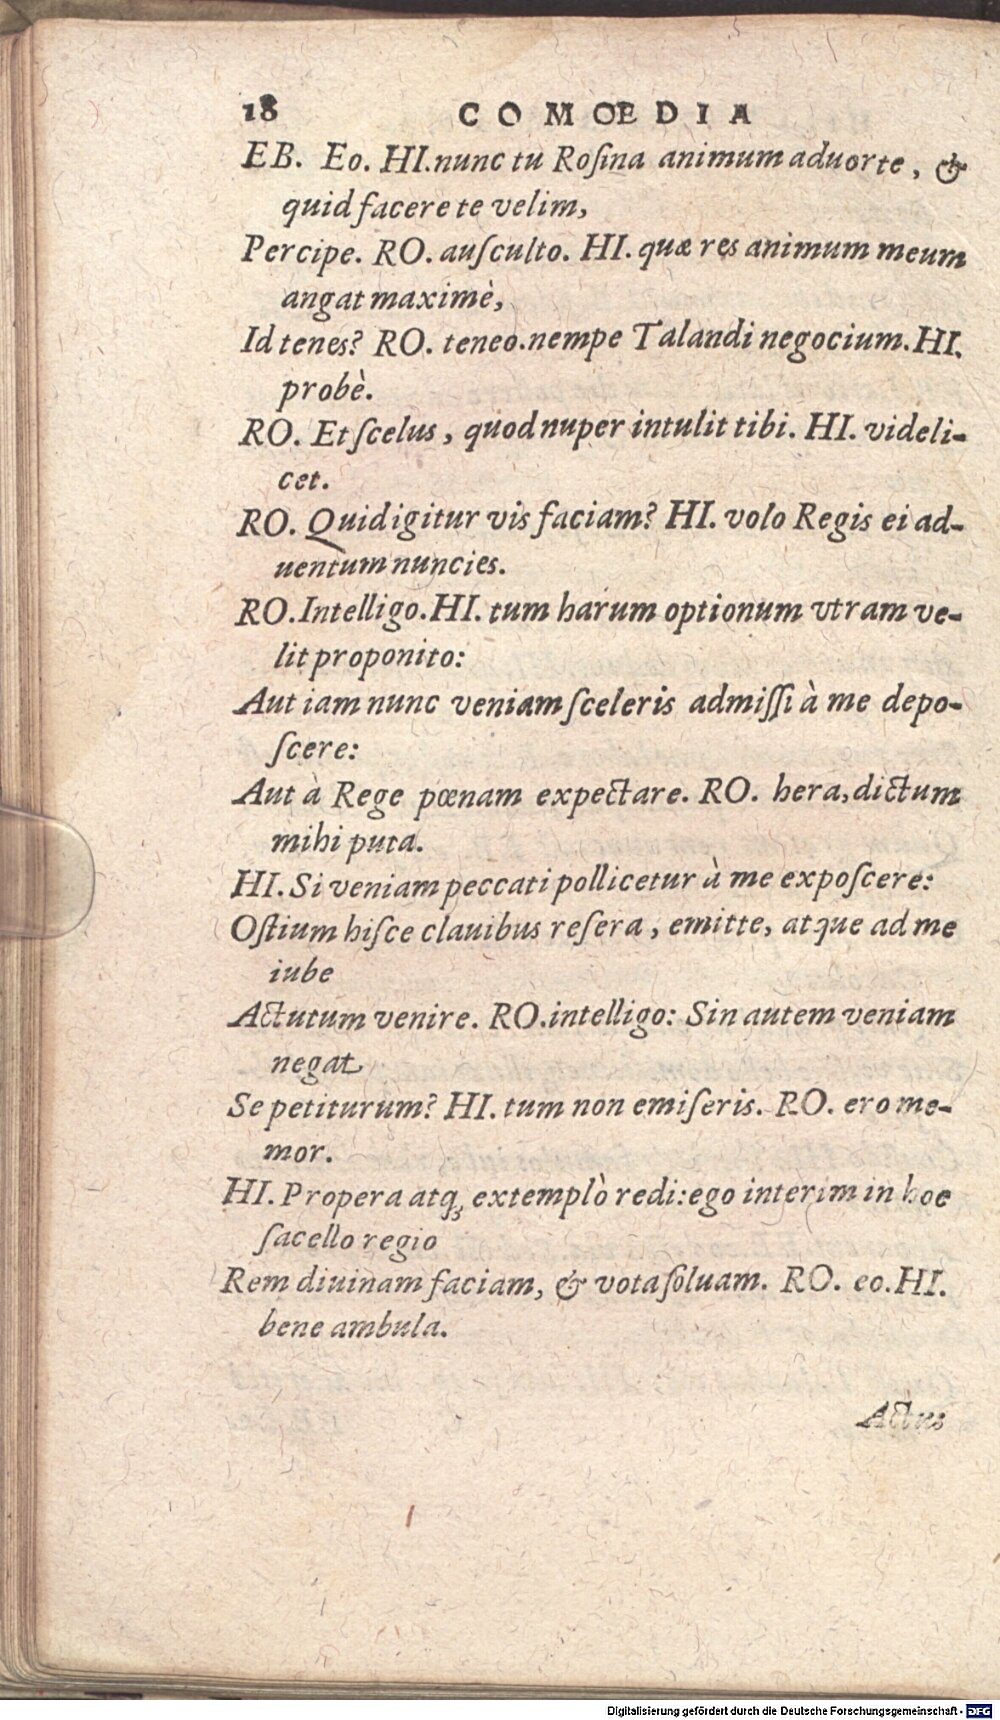 18 COMOEDIA
EB. Eo. HI. nunc tu Roſina animum aduorte, &
quid facere te velim,
Percipe. RO. auſculto. HI. quæ res animum meum
angat maximè,
Id tenes? RO. teneo. nempe Talandi negocium. HI.
probè.
RO. Et ſcelus, quod nuper intulit tibi. HI. videli-
cet.
RO. Quid igitur vis faciam? HI. volo Regis ei ad-
uentum nuncies.
RO. Intelligo. HI. tum harum optionum vtram ve-
lit proponito:
Aut iam nunc veniam ſceleris admiſſi à me depo-
ſcere:
Aut à Rege pœnam expectare. RO. hera, dictum
mihi puta.
HI. Si veniam peccati pollicetur à me expoſcere:
Oſtium hiſce clauibus reſera, emitte, atque ad me
iube
Actutum venire. RO. intelligo: Sin autem veniam
negat
Se petiturum? HI. tum non emiſeris. RO. ero me-
mor.
HI. Propera atq; extemplò redi: ego interim in hoc
ſacello regio
Rem diuinam faciam, & vota ſoluam. RO. eo. HI.
bene ambula.
Actus
Digitalisierung gefördert durch die Deutsche Forschungsgemeinschaft - DFG